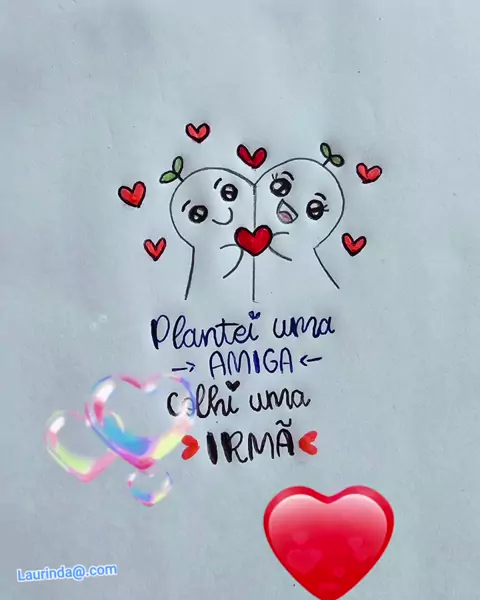 Plantei uma
→ AMIGA ←
Colhi uma
IRMÃ
Laurinda@.com